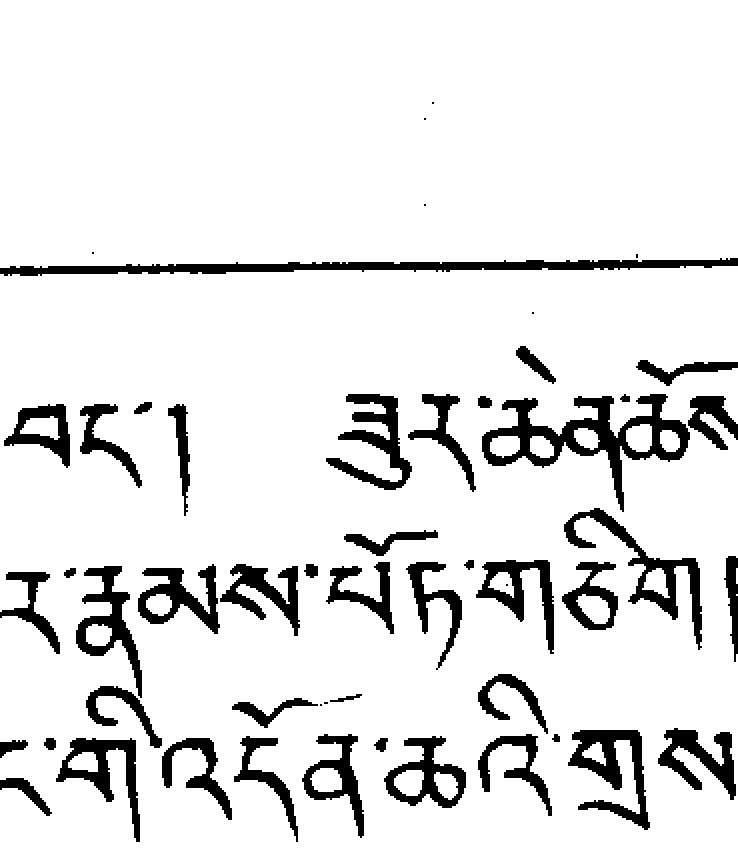 བང་། ཟུར་ཆེན་ཆོས
ར་རྣམས་པོཏ་གཅིག།
ང་གི་འདོན་ཆའི་གྲས